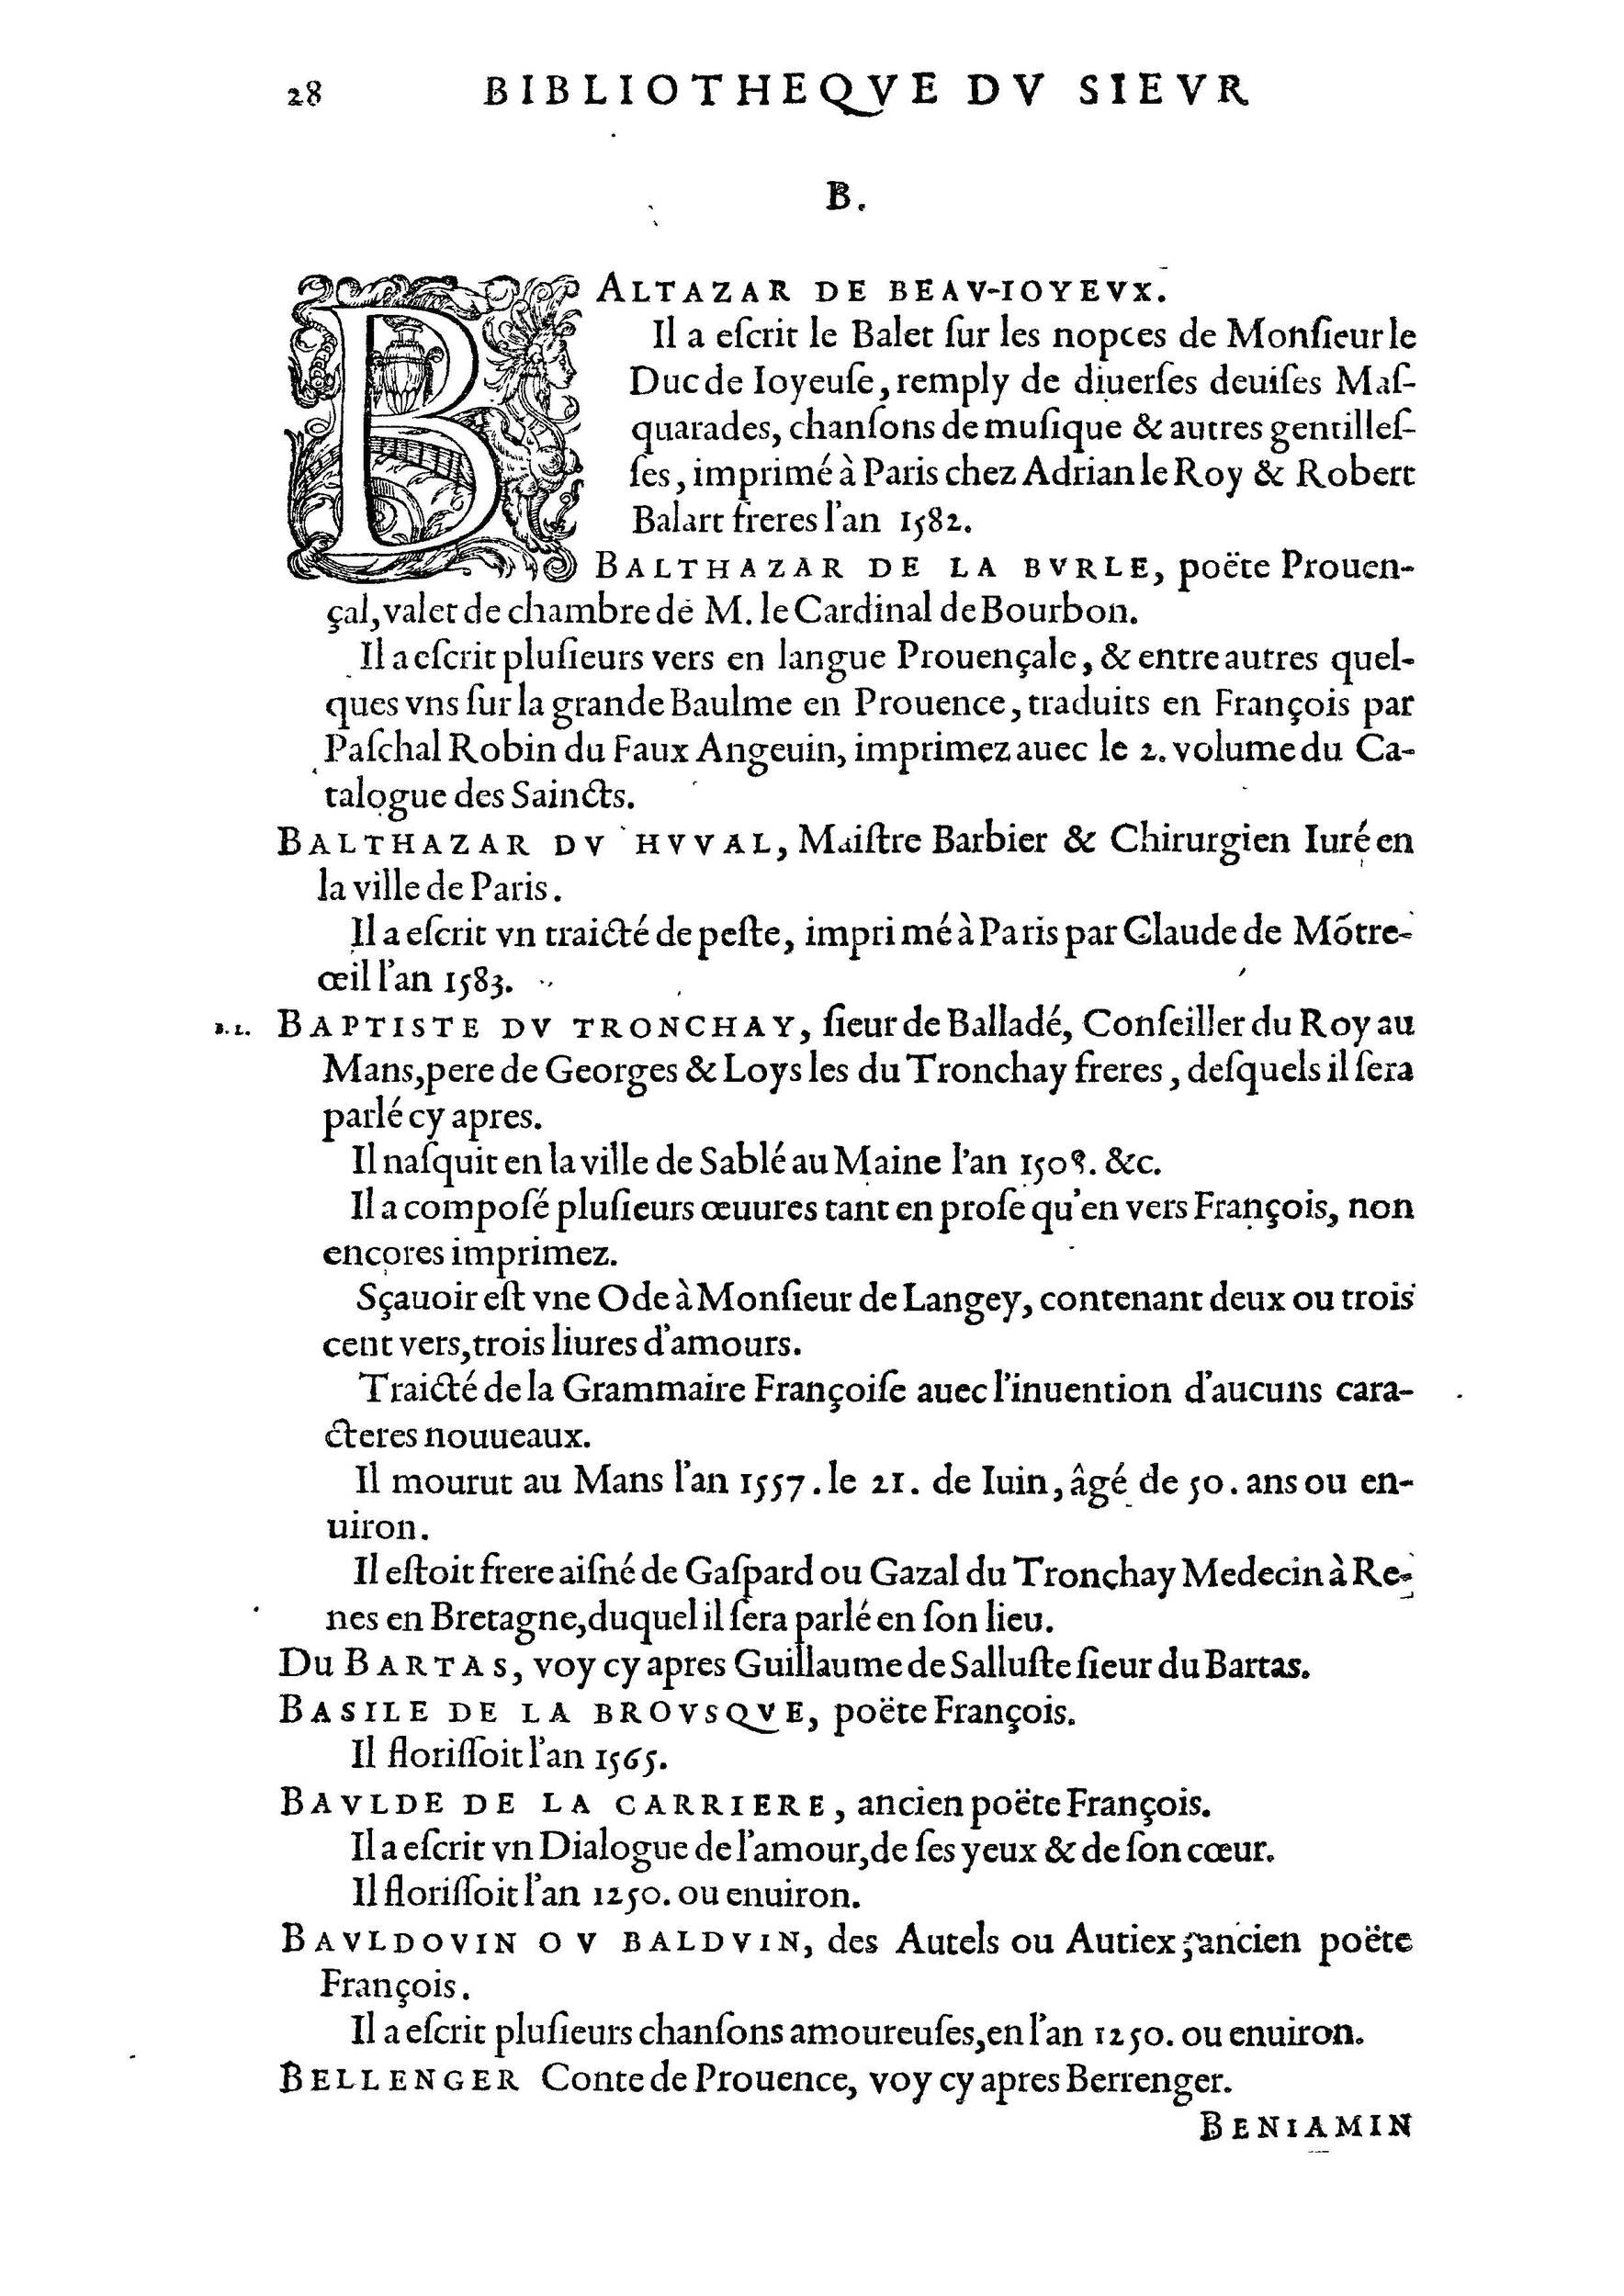 28 BIBLIOTHEQVE DV SIEVR
B.
BALTAZAR DE BEAV-IOYEVX.
Il a eſcrit le Balet ſur les nopces de Monſieur le
Duc de Ioyeuſe, remply de diuerſes deuiſes Maſ-
quarades, chanſons de muſique & autres gentilleſ-
ſes, imprimé à Paris chez Adrian le Roy & Robert
Balart freres l'an 1582.
BALTHAZAR DE LA BVRLE, poëte Prouen-
çal, valet de chambre de M. le Cardinal de Bourbon.
Il a eſcrit pluſieurs vers en langue Prouençale, & entre autres quel-
ques vns ſur la grande Baulme en Prouence, traduits en François par
Paſchal Robin du Faux Angeuin, imprimez auec le 2. volume du Ca-
talogue des Saincts.
BALTHAZAR DV HVVAL, Maiſtre Barbier & Chirurgien Iuré en
la ville de Paris.
Il a eſcrit vn traicté de peſte, imprimé à Paris par Claude de Mõtre-
œil l'an 1583.
B.L. BAPTISTE DV TRONCHAY, ſieur de Balladé, Conſeiller du Roy au
Mans, pere de Georges & Loys les du Tronchay freres, deſquels il ſera
parlé cy apres.
Il naſquit en la ville de Sablé au Maine l'an 1508. &c.
Il a compoſé pluſieurs œuures tant en proſe qu'en vers François, non
encores imprimez.
Sçauoir eſt vne Ode à Monſieur de Langey, contenant deux ou trois
cent vers, trois liures d'amours.
Traicté de la Grammaire Françoiſe auec l'inuention d'aucuns cara-
cteres nouueaux.
Il mourut au Mans l'an 1557. le 21. de Iuin, âgé de 50. ans ou en-
uiron.
Il eſtoit frere aiſné de Gaſpard ou Gazal du Tronchay Medecin à Re-
nes en Bretagne, duquel il ſera parlé en ſon lieu.
Du BARTAS, voy cy apres Guillaume de Salluſte ſieur du Bartas.
BASILE DE LA BROVSQVE, poëte François.
Il floriſſoit l'an 1565.
BAVLDE DE LA CARRIERE, ancien poëte François.
Il a eſcrit vn Dialogue de l'amour, de ſes yeux & de ſon cœur.
Il floriſſoit l'an 1250. ou enuiron.
BAVLDOVIN OV BALDVIN, des Autels ou Autiex, ancien poëte
François.
Il a eſcrit pluſieurs chanſons amoureuſes, en l'an 1250. ou enuiron.
BELLENGER Conte de Prouence, voy cy apres Berrenger.
BENIAMIN